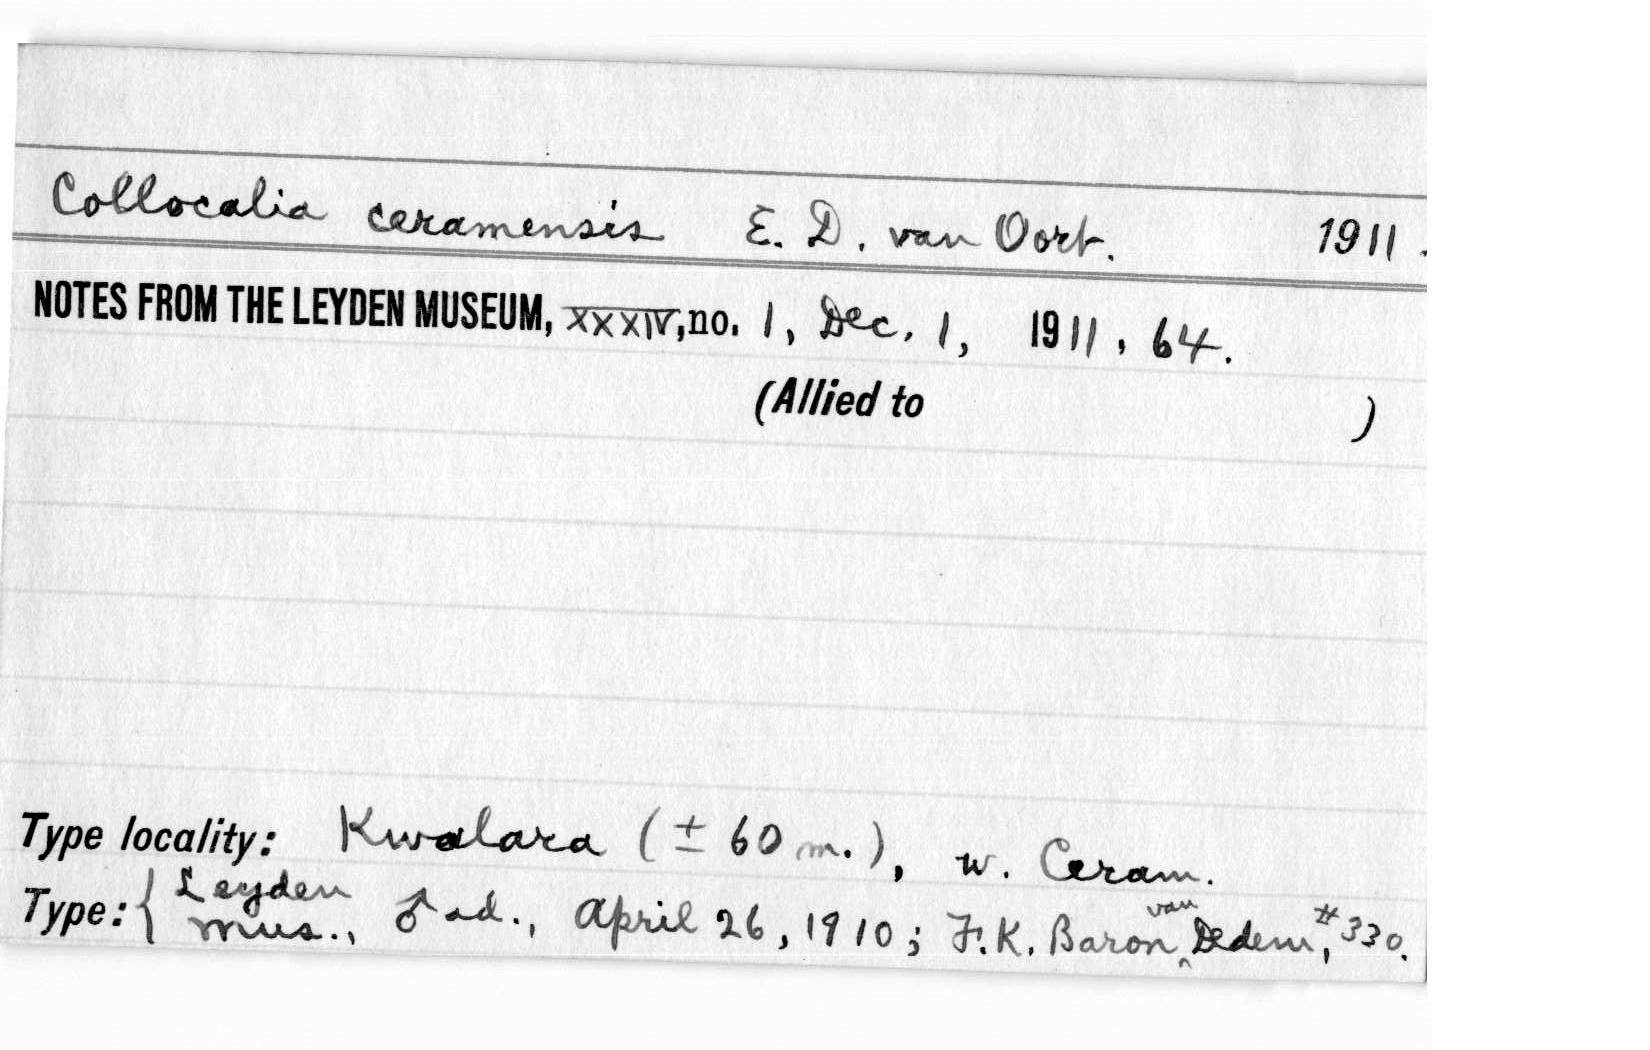 Collocalia ceramensis E. D. van Oort. 1911.
NOTES FROM THE LEYDEN MUSEUM, XXXIV, no. 1, Dec. 1, 1911, 64.
(Allied to )
Type locality: Kwalara (± 60 m.), w. Ceram.
Type: { Leyden Mus., ♂ ad., April 26, 1910; F. K. Baron van Dedem, #330.